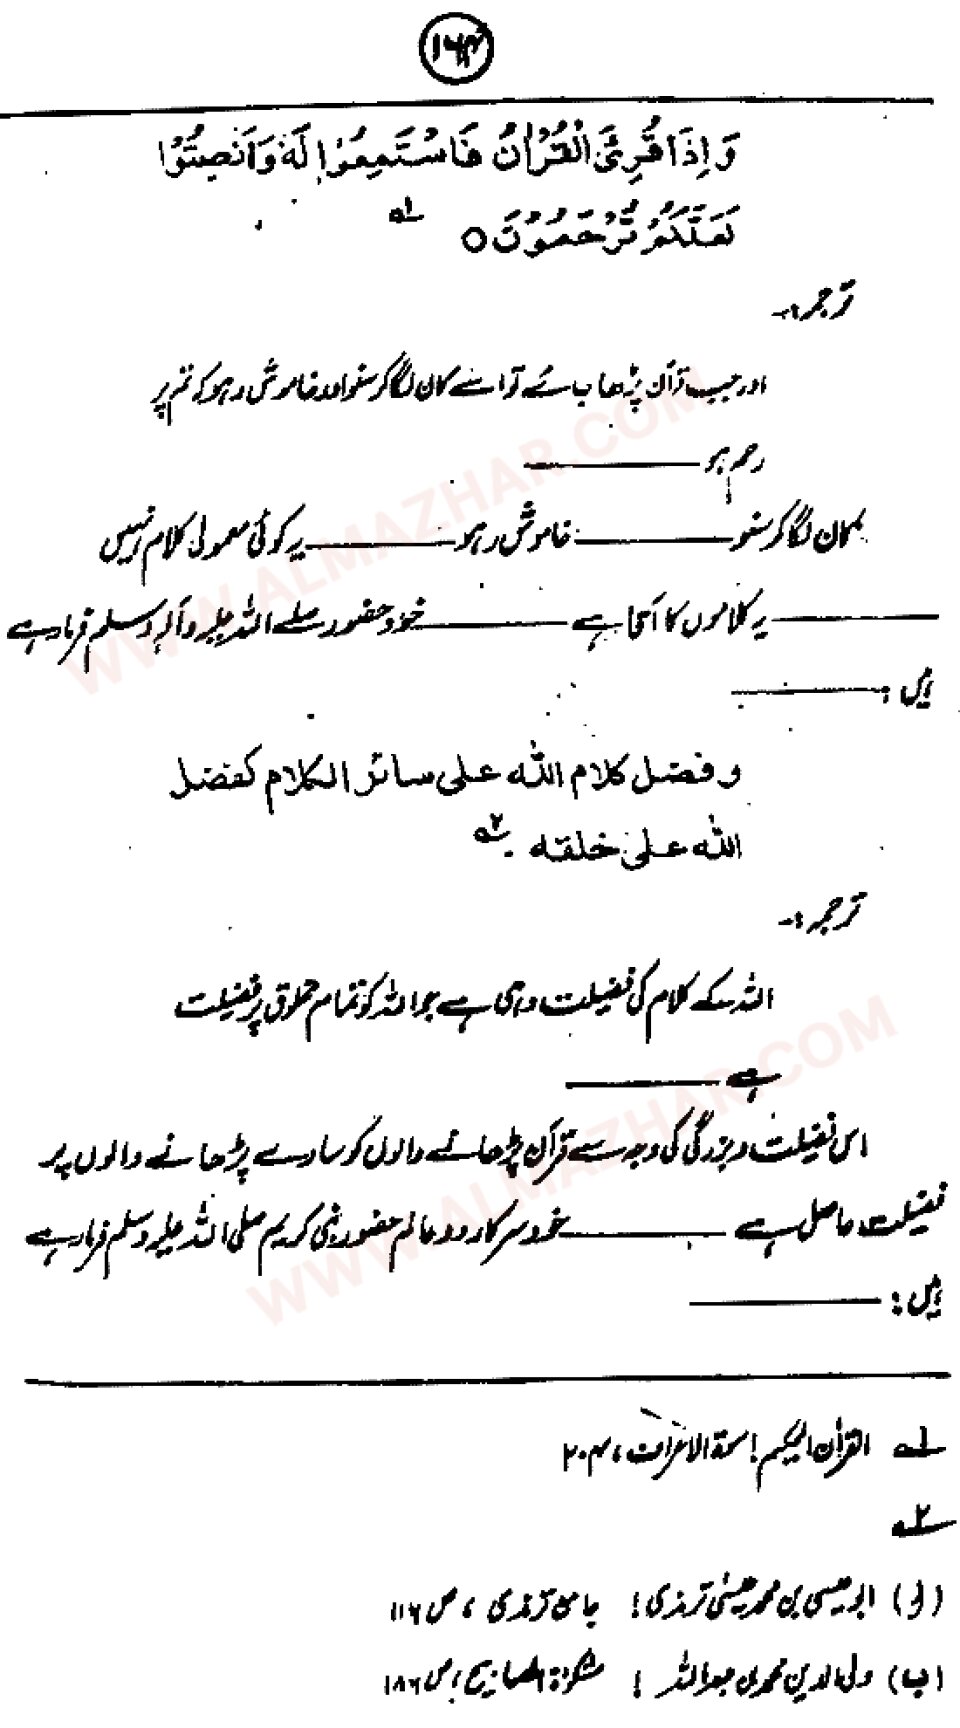 ۱۶۴
وَاِذَا قُرِیَٔ الْقُرْاٰنُ فَاسْتَمِعُوْا لَهٗ وَاَنْصِتُوْا
لَعَلَّكُمْ تُرْحَمُوْنَ ○ ۱؎
ترجمہ:-
اور جب قرآن پڑھا جائے تو اسے کان لگا کر سنو اور خاموش رہو کہ تم پر
رحم ہو ————
کان لگا کر سنو ———— خاموش رہو ———— یہ کوئی معمولی کلام نہیں
———— یہ کلاموں کا آقا ہے ———— خود حضور صلے اللہ علیہ وآلہ وسلم فرما رہے
ہیں: ————
و فضل كلام الله على سائر الكلام كفضل
الله على خلقه ۔ ۲؎
ترجمہ:-
اللہ کے کلام کی فضیلت وہی ہے جو اللہ کو تمام مخلوق پر فضیلت
ہے ————
اس فضیلت و بزرگی کی وجہ سے قرآن پڑھانے والوں کو سارے پڑھانے والوں پر
فضیلت حاصل ہے ———— خود سرکار دو عالم حضور نبی کریم صلی اللہ علیہ وسلم فرما رہے
ہیں: ————
۱؎ القرآن الحکیم! سورۃ الاعراف، ۲۰۴
۲؎
(ا) ابو عیسی بن محمد عیسیٰ ترمذی! جامع ترمذی، ص ۱۱۶
(ب) ولی الدین محمد بن عبداللہ! مشکوٰۃ المصابیح، ص ۱۸۶
WWW.ALMAZHAR.COM
WWW.ALMAZHAR.COM